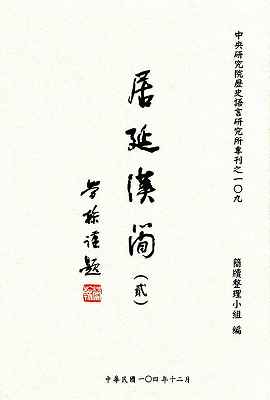 中央研究院歷史語言研究所專刊之一〇九
居延漢簡
(貳)
勞榦謹題
簡牘整理小組 編
中華民國一〇四年十二月